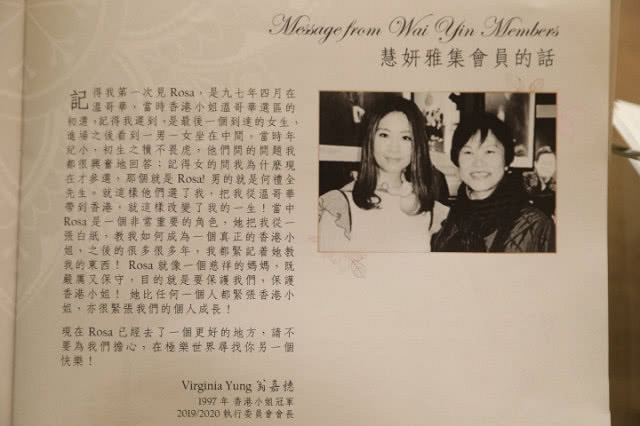 Message from Wai Yin Members
慧妍雅集會員的話
記得我第一次見 Rosa，是九七年四月在
溫哥華，當時香港小姐溫哥華選區的
初選，記得我遲到，是最後一個到達的女生，
進場之後看到一男一女坐在中間。當時年
紀小，初生之犢不畏虎，他們問的問題我
都很興奮地回答；記得女的問我為什麼現
在才參選，那個就是 Rosa! 男的就是何禮全
先生。就這樣他們選了我，把我從溫哥華
帶到香港，就這樣改變了我的一生！當中
Rosa 是一個非常重要的角色，她把我從一
張白紙，教我如何成為一個真正的香港小
姐，之後的很多很多年，我都緊記着她教
我的東西！ Rosa 就像一個慈祥的媽媽，既
嚴厲又保守，目的就是要保護我們，保護
香港小姐！ 她比任何一個人都緊張香港小
姐，亦很緊張我們的個人成長！
現在 Rosa 已經去了一個更好的地方，請不
要為我們擔心，在極樂世界尋找你另一個
快樂！
Virginia Yung 翁嘉穗
1997 年 香港小姐冠軍
2019/2020 執行委員會會長